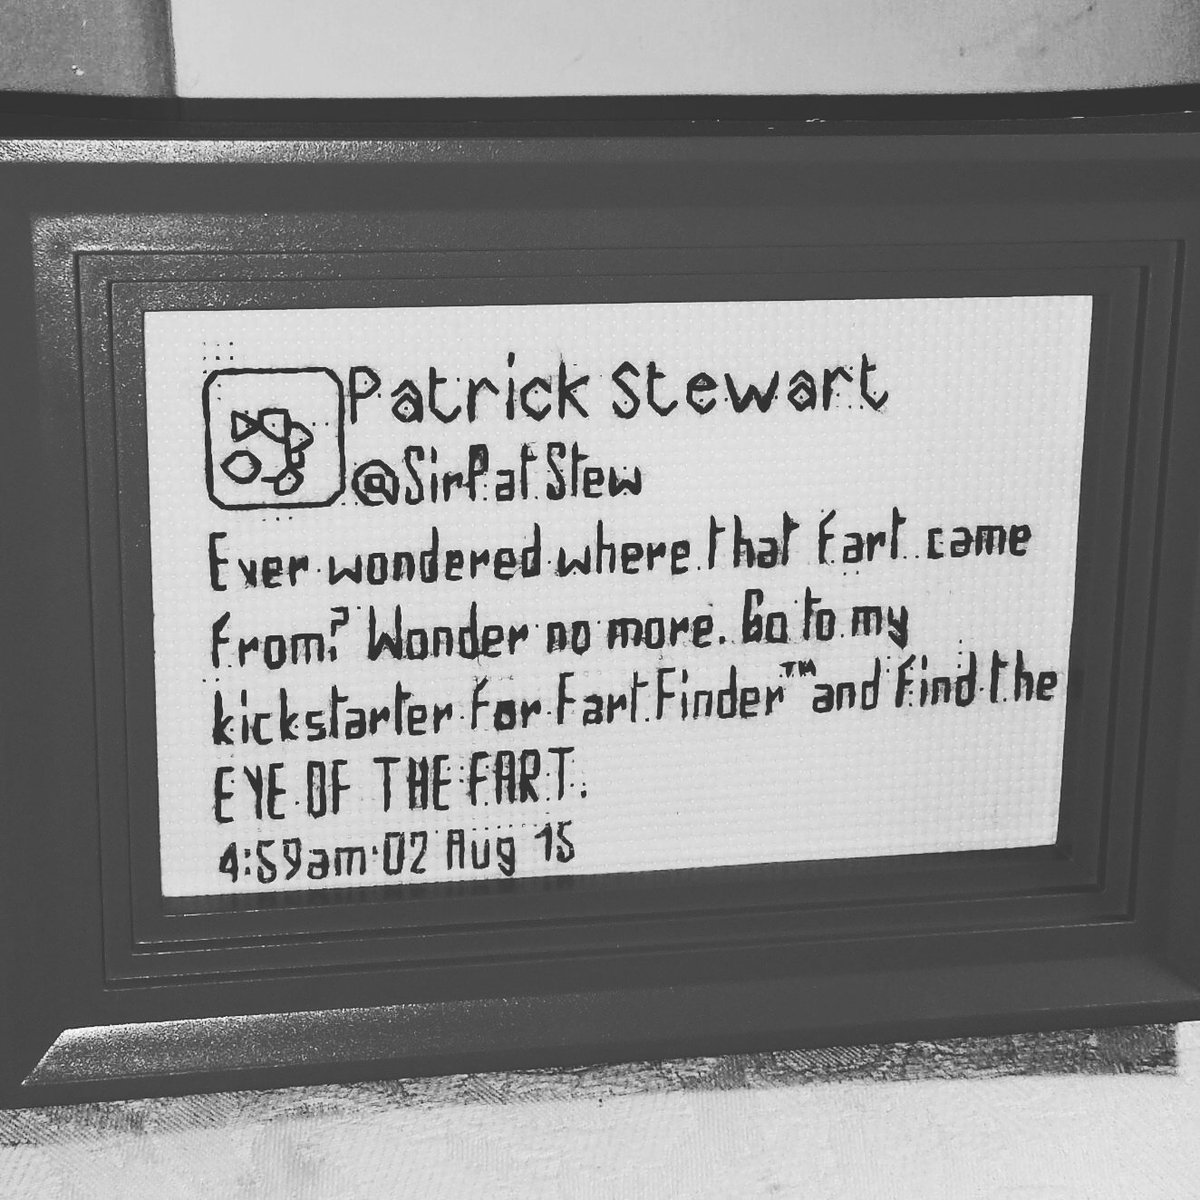 Patrick Stewart
@SirPatStew
Ever wondered where that fart came
from? Wonder no more. Go to my
kickstarter for Fart Finder™ and find the
EYE OF THE FART.
4:59am·02 Aug 15